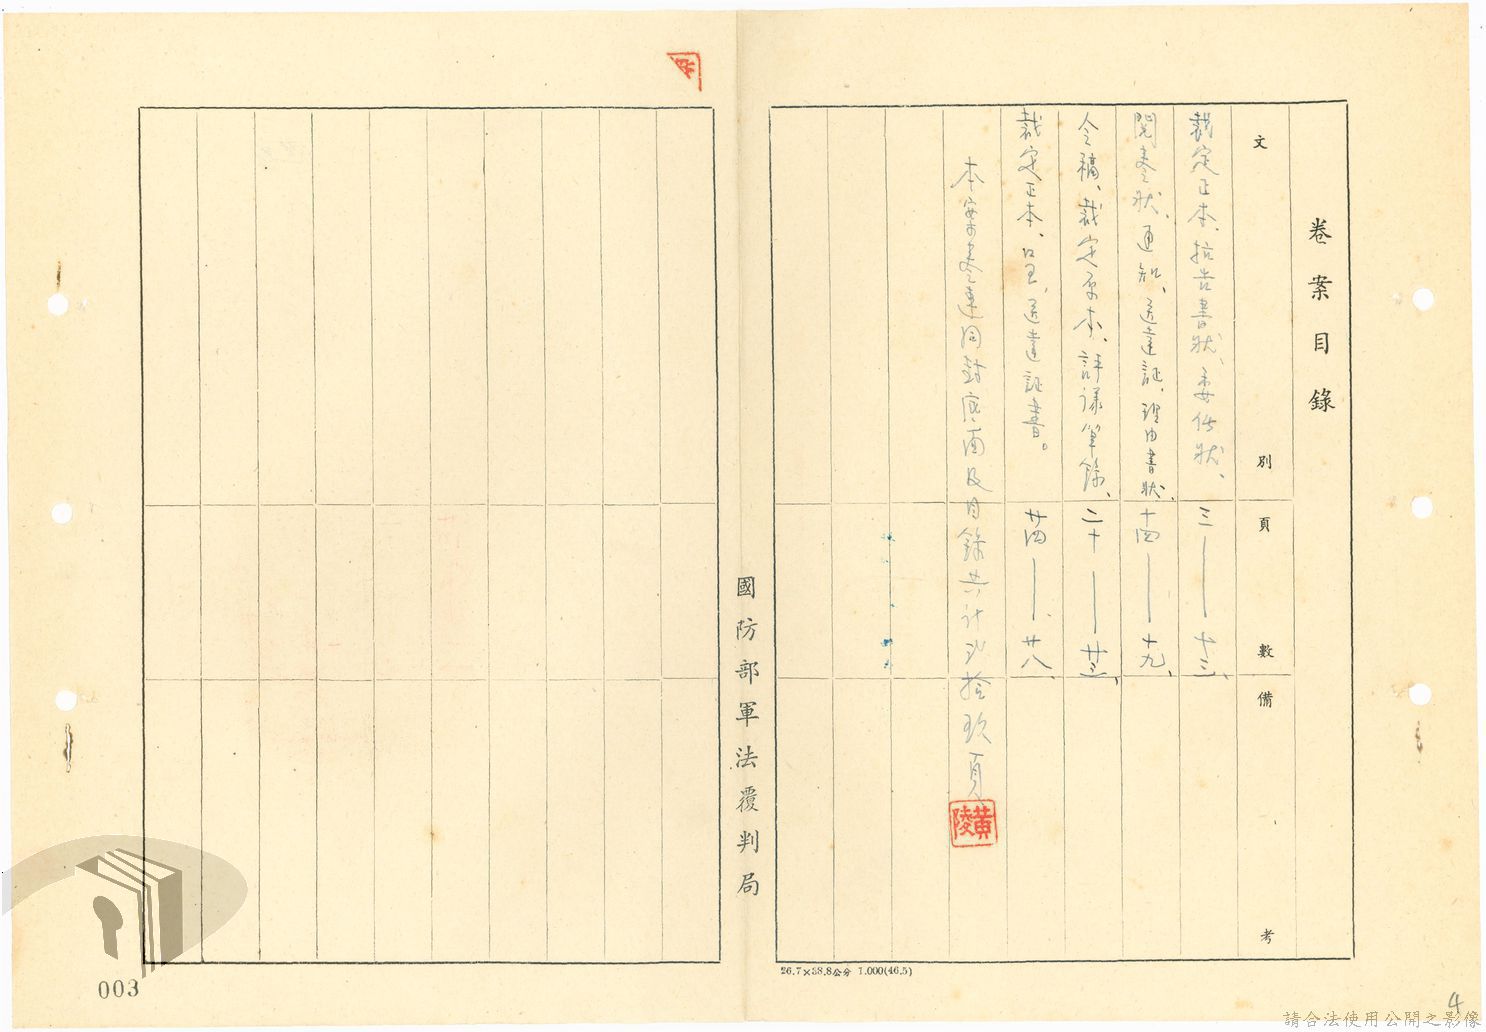 卷案目錄
文別
頁數
備考
裁定正本、抗告書狀、委任狀、
三——十三、
閱卷狀、通知、送達証、理由書狀、
十四——十九、
令稿、裁定原本、評議筆錄、
二十——廿三、
裁定正本、呈、送達証書。
廿四——廿八、
本案卷連同封底面及目錄共計貳拾玖頁
黃陵
26.7×38.8公分 1.000(46.5)
國防部軍法覆判局
003
4
請合法使用公開之影像